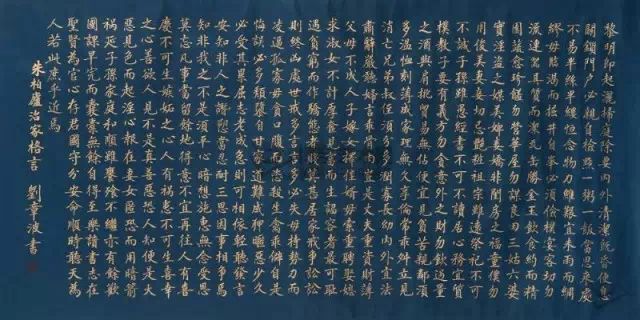 黎明即起灑掃庭除要內外清潔既昏便息
關鎖門戶必親自檢點一粥一飯當思來處
不易半絲半縷恒念物力維艱宜未雨而綢
繆毋臨渴而掘井自奉必須儉樸宴客切勿
流連器具質而潔瓦缶勝金玉飲食約而精
園蔬愈珍饈勿營華屋勿謀良田三姑六婆
實淫盜之媒婢美妾嬌非閨房之福童僕勿
用俊美妻妾切忌艷粧祖宗雖遠祭祀不可
不誠子孫雖愚經書不可不讀居心務宜質
樸教子要有義方勿貪意外之財勿飲過量
之酒與肩挑貿易無佔便宜見貧苦親鄰須
多溫恤刻薄成家理無久享倫常乖舛立見
消亡兄弟叔侄須多潤寡長幼內外宜法
肅辭嚴聽婦言乖骨肉豈是丈夫重資財薄
父母不成人子嫁女擇佳婿毋索重聘娶媳
求淑女不計厚奩見富貴而生諂容者最可恥
遇貧窮而作驕態者賤莫甚居家戒爭訟訟
則終凶處世戒多言言多必失毋恃勢力而
凌逼孤寡毋貪口腹而恣殺牲禽乖僻自是
悔誤必多頹隳自甘家道難成狎暱惡少久
必受其累屈志老成急則可相依輕聽發言
安知非人之譖愬當忍耐三思因事相爭焉
知非我之不是須平心暗想施惠無念受恩
莫忘凡事當留餘地得意不宜再往人有喜
慶不可生嫉妒之心人有禍患不可生喜幸
之心善欲人見不是真善惡恐人知便是大
惡見色而起淫心報在妻女匿怨而用暗箭
禍延子孫家庭和順雖饔飧不繼亦有餘歡
國課早完而囊橐無餘自得至樂讀書志在
聖賢為官心存君國守分安命順時聽天為
人若此庶乎近焉
朱柏廬治家格言 劉章波書